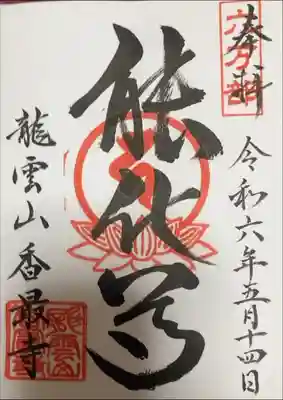 奉拝
令和六年五月十四日
能化尊
龍雲山香最寺